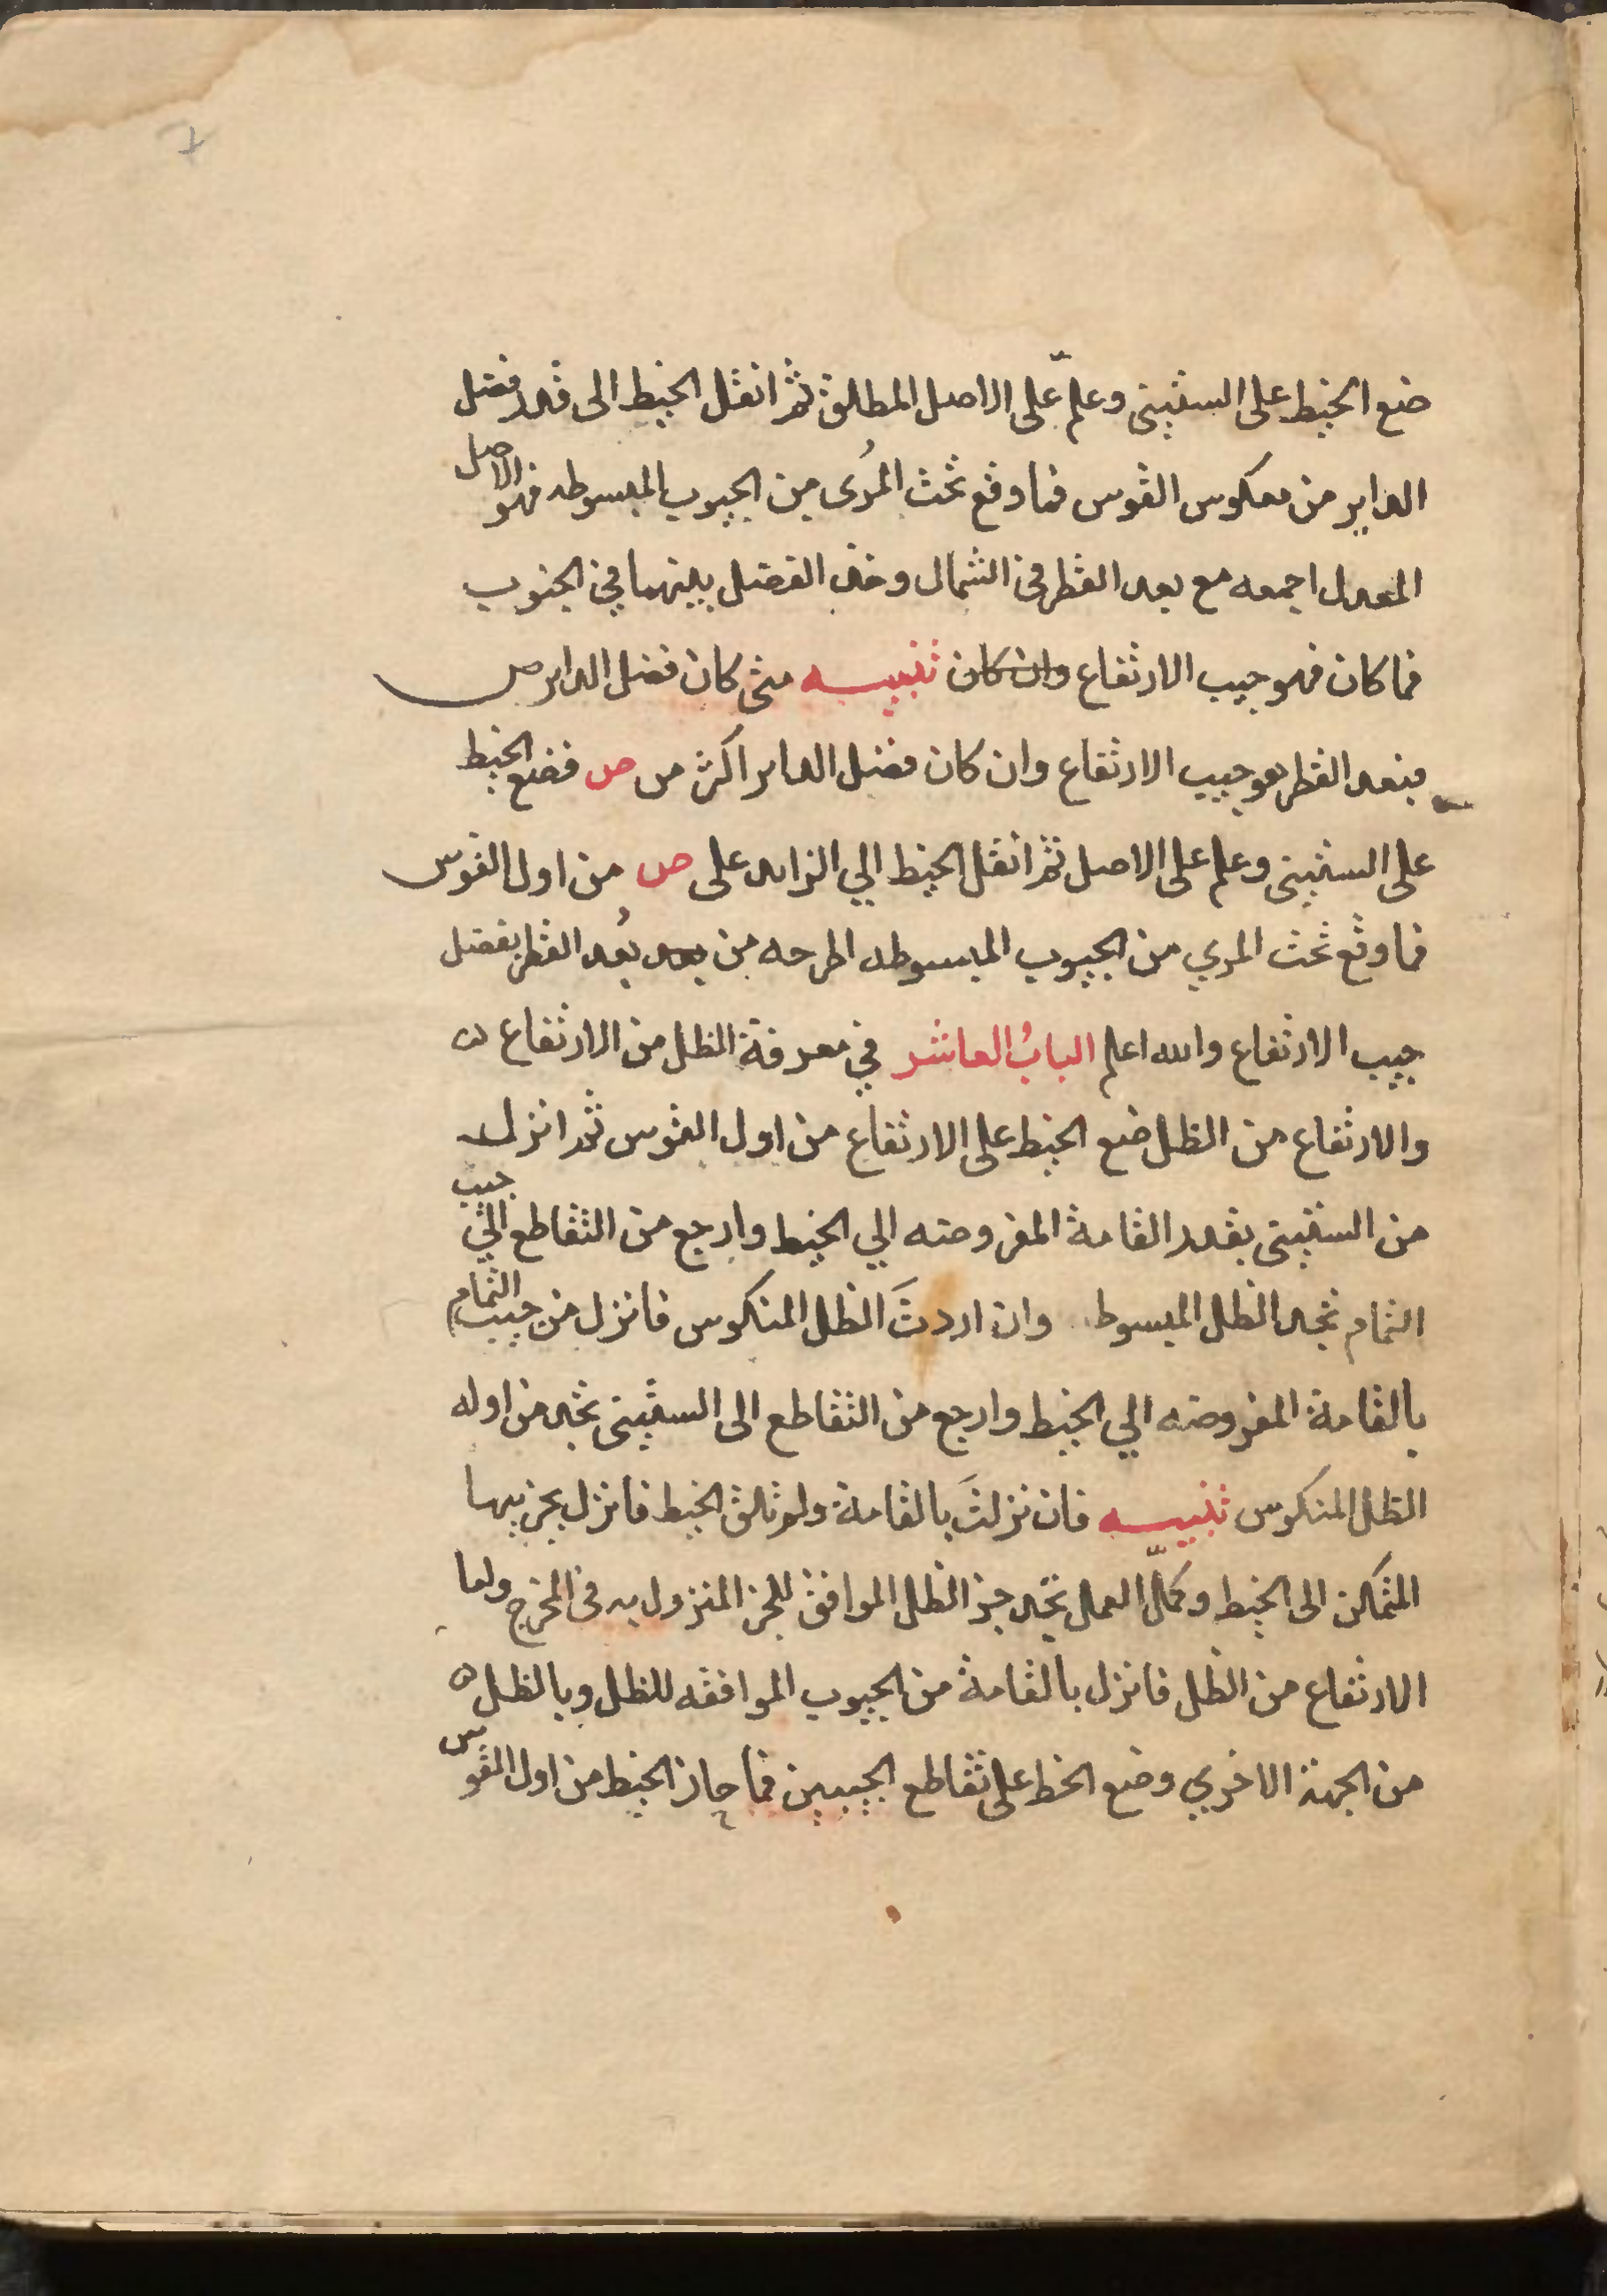 7
ضع الخيط على الستيني وعلّم على الاصل المطلق ثم انقل الخيط الى قدر فضل
الداير من معكوس القوس فما وقع تحت المُرى من الجيوب المبسوطه فهو الاصل
المعدل اجمعه مع بعد القطر في الشمال وخذ الفضل بينهما في الجنوب
فما كان فهو جيب الارتفاع وان كان تنبيه متى كان فضل الداير ص
فبعد القطر هو جيب الارتفاع وان كان فضل الداير اكثر من ص فضع الخيط
على الستيني وعلم على الاصل ثم انقل الخيط الي الزايد على ص من اول القوس
فما وقع تحت المري من الجيوب المبسوطه اطرحه من بعد بُعد القطر يفضل
جيب الارتفاع والله اعلم البابُ العاشر في معرفة الظل من الارتفاع
والارتفاع من الظل ضع الخيط على الارتفاع من اول القوس ثم انزل
من الستيني بقدر القامة المفروضه الي الخيط وارجع من التقاطع الي جيب
التمام تجد الظل المبسوط وان اردتَ الظل المنكوس فانزل من جيب التمام
بالقامة المفروضه الي الخيط وارجع من التقاطع الى الستيني تجد من اوله
الظل المنكوس تنبيه فان نزلتَ بالقامة ولم تلق الخيط فانزل بجزيها
المتمكن الى الخيط وكمّل العمل تجد جز الظل الموافق للجز المنزول به في المخرج ولما
الارتفاع من الظل فانزل بالقامة من الجيوب الموافقه للظل وبالظل
من الجهة الاخري وضع الخط على تقاطع الجيبين فما حاز الخيط من اول القوس